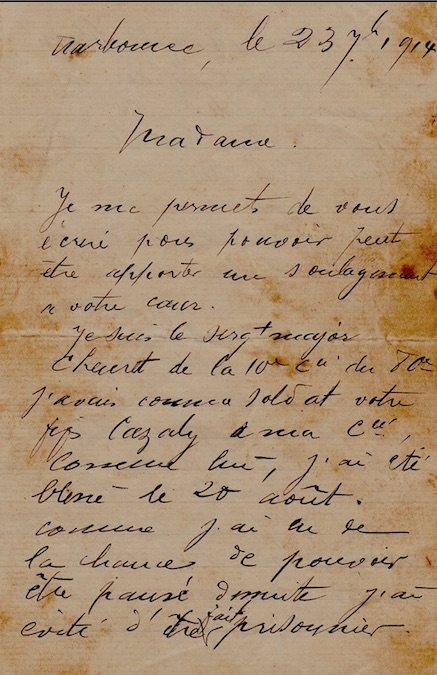 Narbonne, le 23 7bre 1914
Madame.
Je me permets de vous
écrire pour pouvoir peut
être apporter un soulagement
a votre cœur.
Je suis le sergt major
de la 10e Cie du 80e
j'avais comme soldat votre
fils Cazaly a ma Cie,
comme lui, j'ai été
blessé le 20 août.
comme j'ai eu de
la chance de pouvoir
être pansé j'ai
évité d'être fait prisonnier.